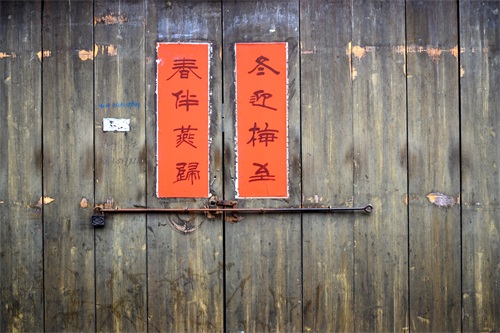 冬迎梅至
春伴燕歸